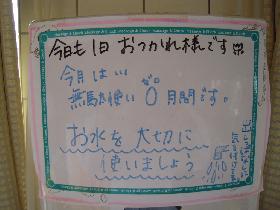 今日も1日 おつかれ様です
今月は...
無駄な使い ゼロ 0 月間です。
お水を 大切に
使いましょう